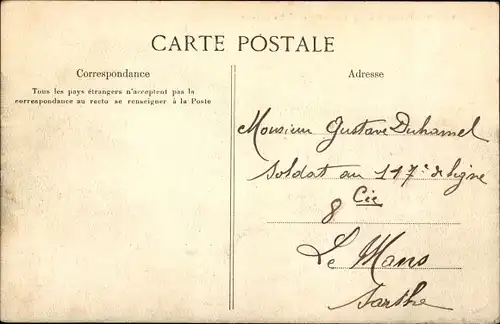 CARTE POSTALE
Correspondance
Tous les pays étrangers n'acceptent pas la
correspondance au recto se renseigner à la Poste
Adresse
Monsieur Gustave Duhamel
Soldat au 117e de ligne
8 Cie
Le Mans
Sarthe